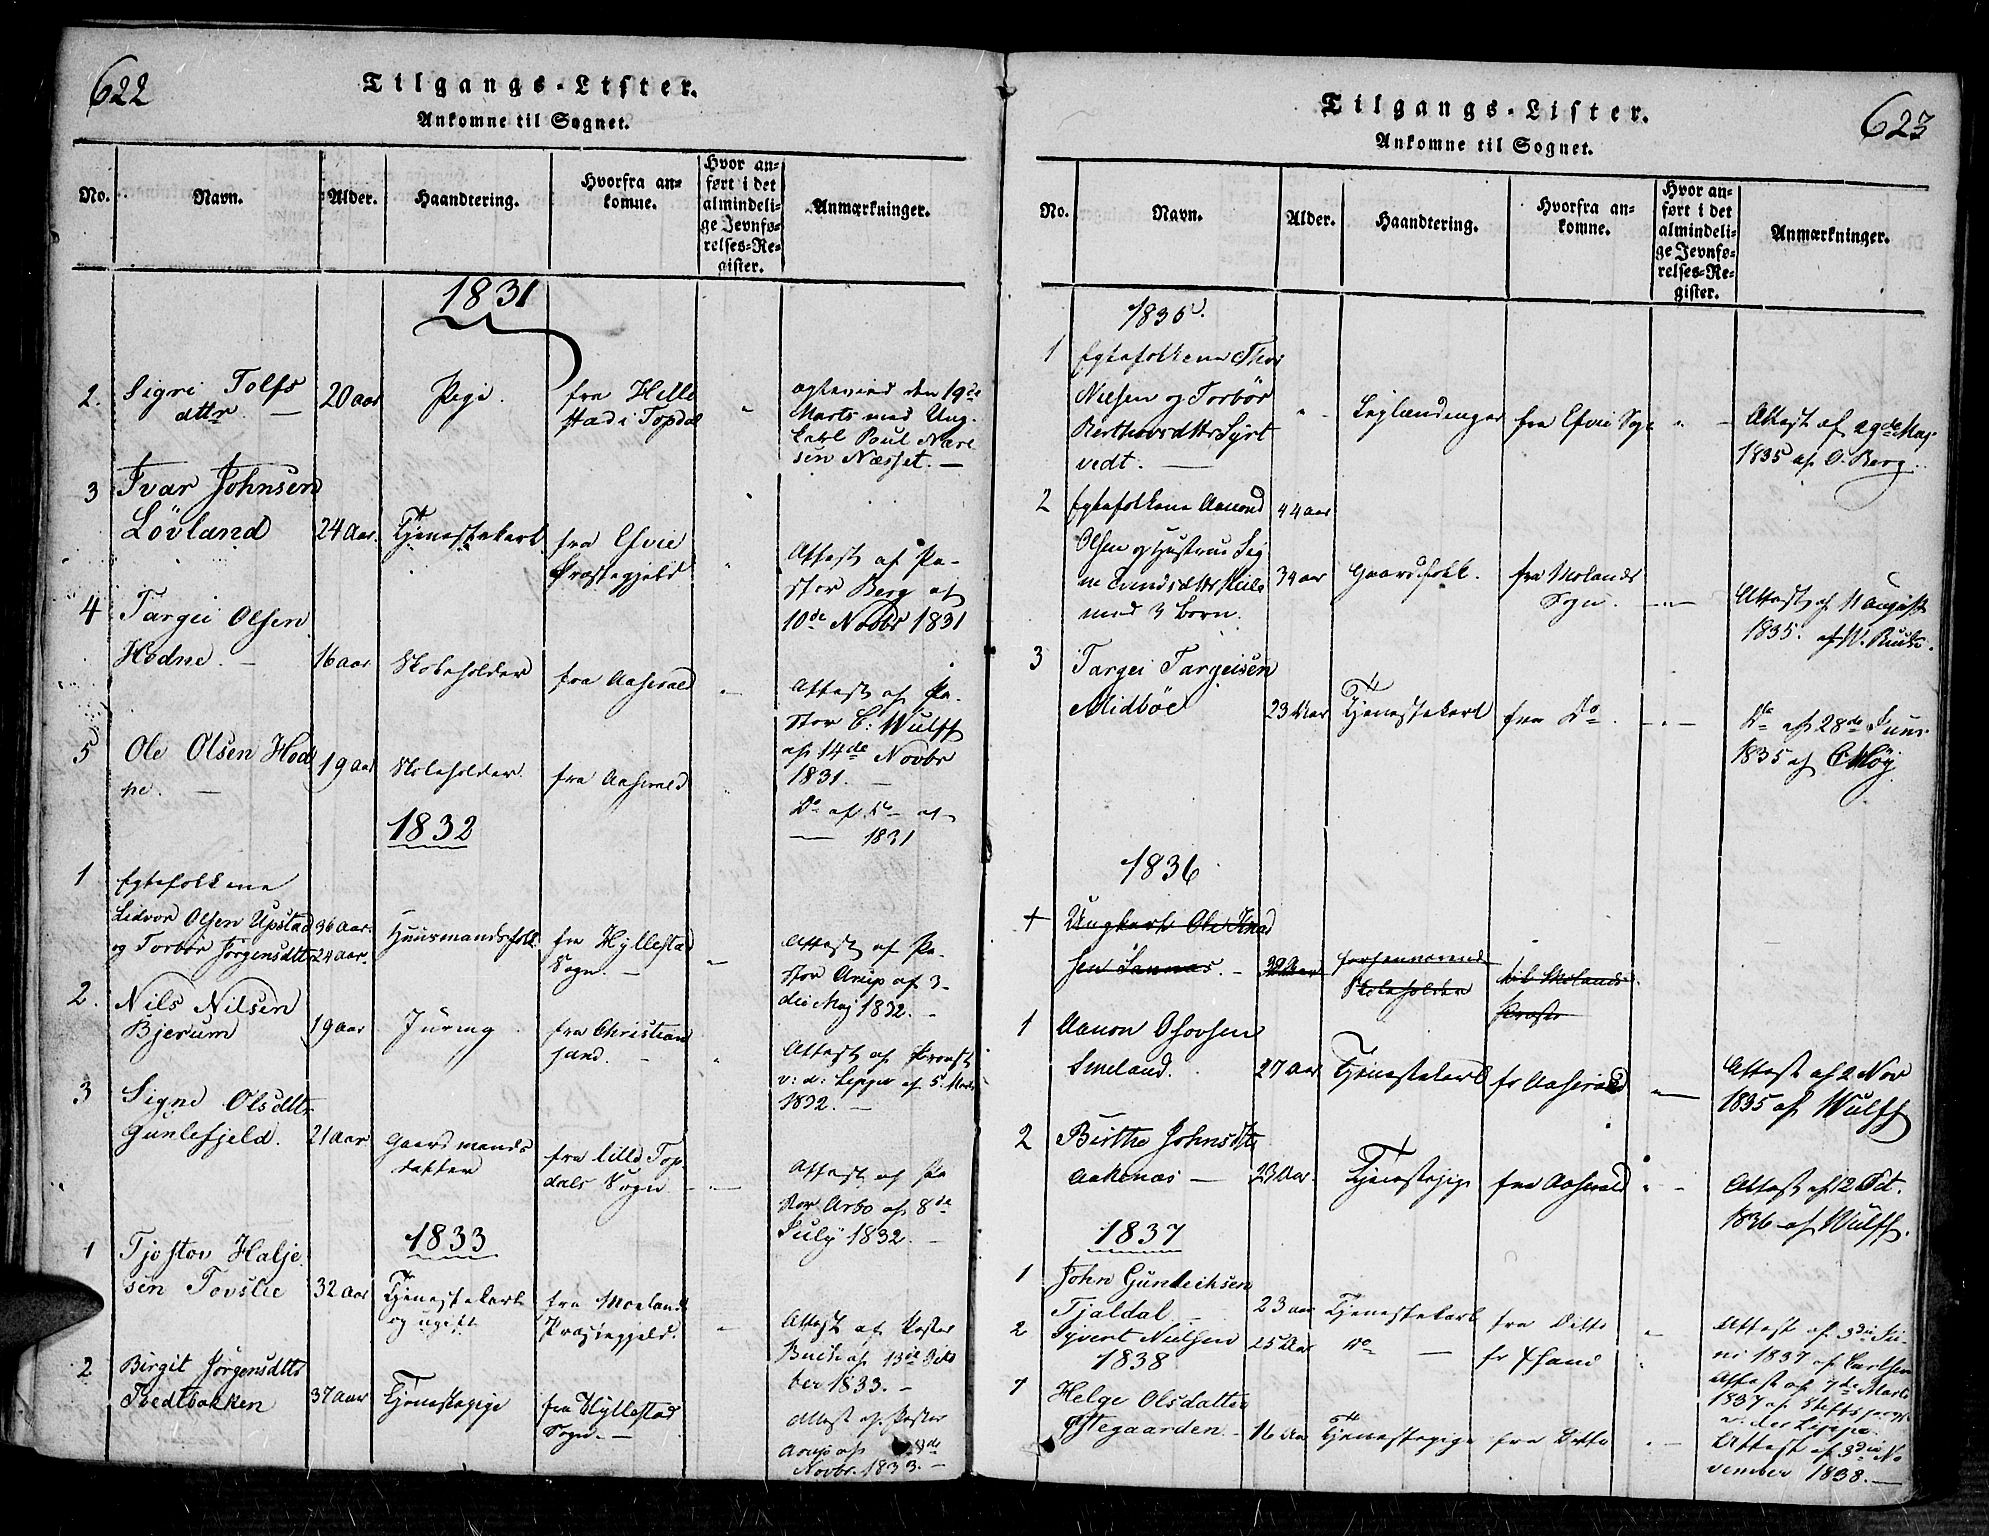 622
Tilgangs-Lister.
Ankomne til Sognet.
No. Navn. Alder. Haandtering. Hvorfra ankomne. Hvor anført i det almindelige Jevnførelses-Register. Anmærkninger.
1831
2. Sigri Tolfs 20 aar Pige. fra Hille
dttr. — stad i Topdal
ægteviet den 19de
Marts med Ung-
karl Poul
sen Næsset. —
3 Ivar Johnsen
Lövland 24 Aar. Tjenestekarl fra Efvie
Præstegjeld
Attest af Pa-
stor Berg af
10de Novbr 1831
4 Targei Olsen
Hodne. — 16 aar Skoleholder fra Aaserald
Attest af Pa-
stor C: Wulff
af 14de Novbr
1831. —
5 Ole Olsen Hod 19 aar Skoleholder. fra Aaserald
ne. —
Do af Do af
— 1831
1832
1 Egtefolkene
Lidvor Olsen Upstad 36 Aar. Huusmandsfolk fra Hyllestad
og Torbör Jörgensdttr 24 aar. Sogn. —
Attest af Pa-
stor Arup af 3-
die Maj 1832. —
2. Nils Nilsen
Bjerum 19 aar fra Christian
sand. —
Attest af Provst
v: d: Lippe af 5. Marts
1832. —
3 Signe Olsdttr
Gunlefjeld. 21 aar Gaardmands
datter fra Lille Top
dals Sogn
Attest af Pa
stor Arbo af 8de
July 1832. —
1833
1 Tjostov Halje
sen Tovslie 32 aar Tjenestekarl fra Moland
og ugift Præstegjeld.
Attest af Pastor
Buch af 13de
ber 1833. —
2 Birgit Jörgensdttr
Tvedtbakken 37 aar Tjenestepige fra Hyllestad
Sogn. —
Attest af Pastor
Arup af 8de
Novbr. 1833. —
623
Tilgangs-Lister.
Ankomne til Sognet.
No. Navn. Alder. Haandtering. Hvorfra ankomne. Hvor anført i det almindelige Jevnførelses-Register. Anmærkninger.
1835.
1 Egtefolkene Thor
Nielsen og Torbör
vedt. — Leylændinger fra Efvie Sogn
Attest af 29de Maj
1835 af O. Berg
2 Egtefolkene Aanond 44 aar
Olsen og Hustrue Sig
ne 34 aar Gaardfolk. fra Molands
med 3 Börn. Sogn.
Attest af 11 August
1835. af
3 Targei Targeisen
Midböe 23 Aar Tjenestekarl fra Do.
Do af 28de Juni
1835 af
1836
+ Ungkarl Ole Knud
sen — 39 Aar forhenværende til Molands
Skoleholder Præstg
1 Aanon Osovsen
Smeland. 27 Aar Tjenestekarl fr Aaserald
Attest af 2 Nov
1835 af Wulff
2 Birthe Johnsdttr
Aakenæs — 23 Aar. Tjenestepige fra Aaserald
Attest af 12 Oct.
1836 af Wulff.
1837
1 John Gunleiksen
Tjaldal 23 aar Tjenestekarl fra Ditto
Attest af 3die Ju-
ni 1837 af Carlsen
2 Syvert Nielsen 25 Aar Do — fr Chsand
Attest af 7de Marts
1837 af Stiftsprovst
v. der Lippe.
1838
1 Helge Olsdatter
Östegaarden. — 16 Aar Tjenestepige fra Ditto
Attest af 3die No
vember 1838. —